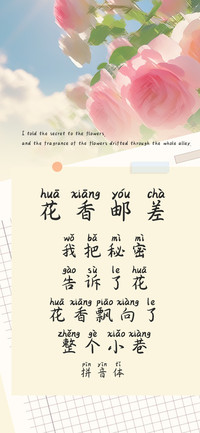 I told the secret to the flowers,
and the fragrance of the flowers drifted through the whole alley
huā xiāng yóu chà
花香邮差
wǒ bǎ mì mì
我把秘密
gào sù le huā
告诉了花
huā xiāng piāo xiàng le
花香飘向了
zhěng gè xiǎo xiàng
整个小巷
pīn yīn tǐ
拼音体